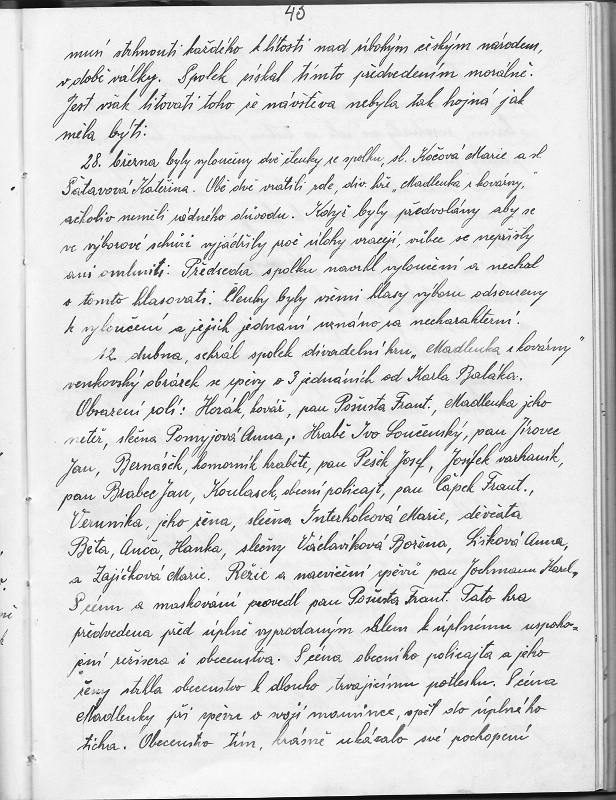 43
musí strhnouti každého k lítosti nad ubohým českým národem,
v době války. Spolek získal tímto předvedením morálně.
Jest však litovati toho že návštěva nebyla tak hojná jak
měla býti.
28. března byly vyloučeny dvě členky ze spolku, sl. Kočová Marie a sl.
Šátavová Kateřina. Obě dvě vrátili role, div. hře „Madlenka z kovárny,"
ačkoliv neměli řádného důvodu. Když byly předvolány aby se
ve výborové schůzi vyjádřily proč úlohy vracejí, vůbec se nepřišly
ani omluviti. Předseda spolku navrhl vyloučení a nechal
o tomto hlasovati. Členky byly všemi hlasy výboru odsouzeny
k vyloučení a jejich jednání uznáno za necharakterní.
12 dubna, sehrál spolek divadelní hru „Madlenka z kovárny"
venkovský obrázek se zpěvy o 3 jednáních od Karla Baláka.
Obsazení rolí: Horák, kovář, pan Pošusta Frant., Madlenka jeho
neteř, slečna Pomyjová Anna,: Hrabě Ivo Loučenský, pan Jírovec
Jan, Bernášek, komorník hraběte, pan Pešek Josef, Josífek varhaník,
pan Brabec Jan, Koulasek, obecní policajt, pan Čápek Frant.,
Verunika, jeho žena, slečna Interholcová Marie, děvčata
Běta, Anča, Hanka, slečny Václavíková Božena, Lišková Anna,
a Zajíčková Marie. Režie a nacvičení zpěvů pan Jochmann Karel,
Scénu a maskování provedl pan Pošusta Frant. Tato hra
předvedena před úplně vyprodaným sálem k úplnému uspoko=
jení režisera i obecenstva. Scéna obecního policajta a jeho
ženy strhla obecenstvo k dlouho trvajícímu potlesku. Scena
Madlenky při zpěvu o svojí mamince, zpět do úplného
ticha. Obecenstvo tím, krásně ukázalo své pochopení